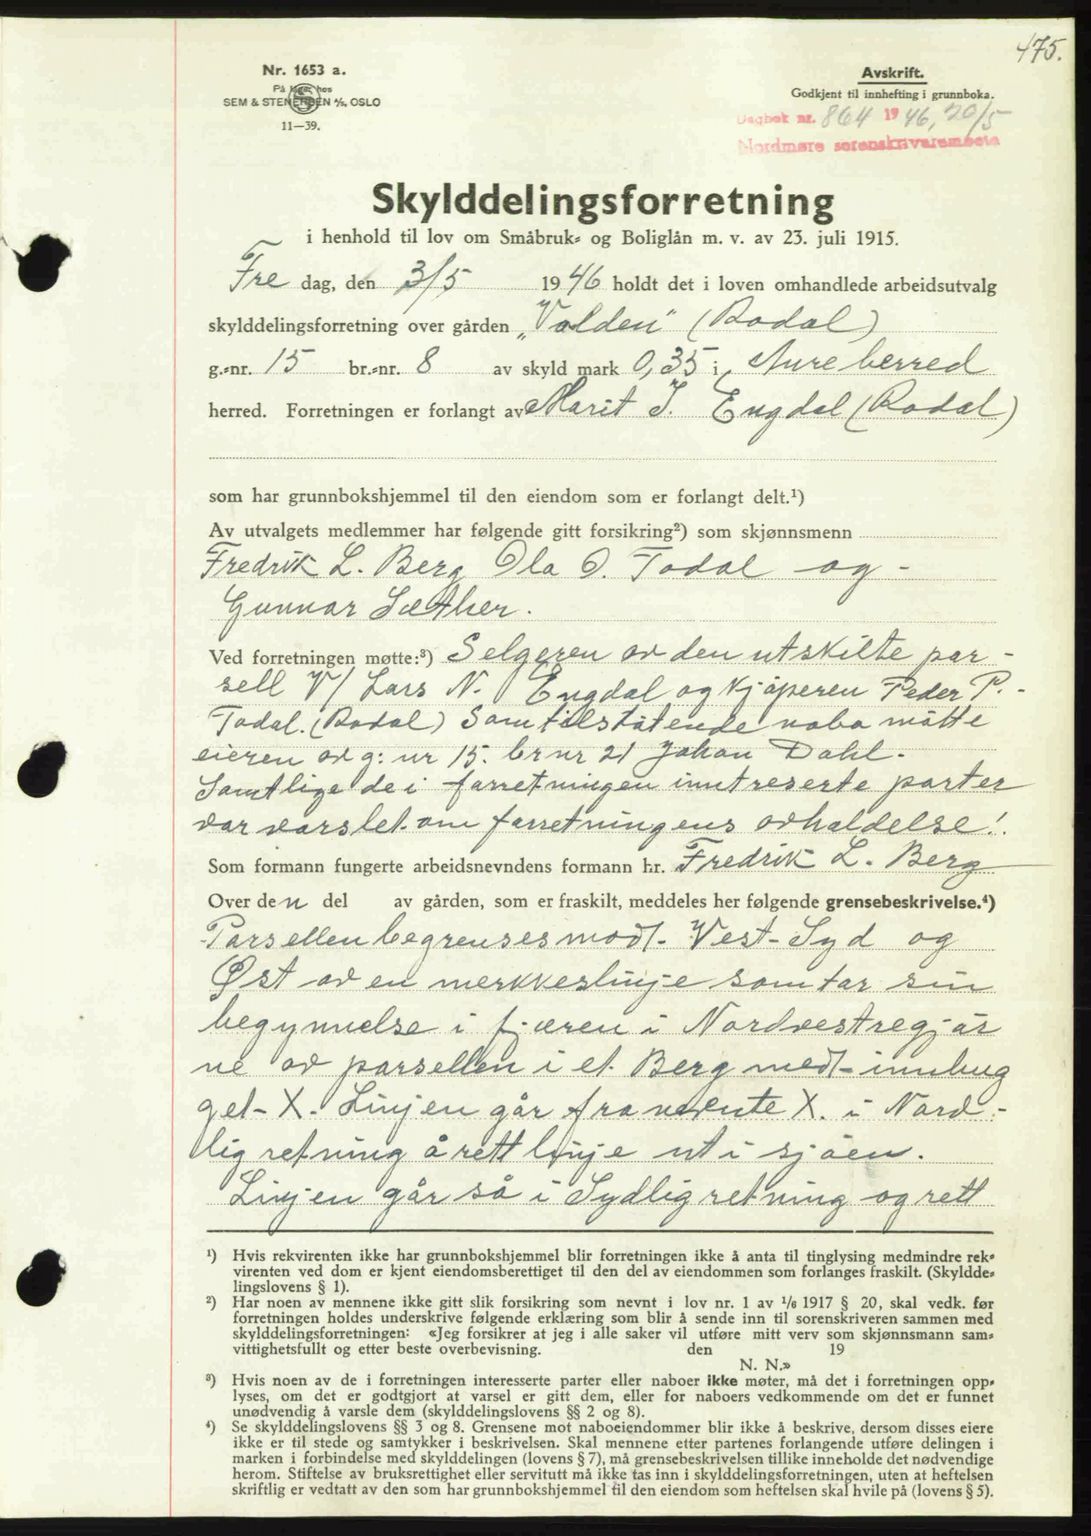 475.
Nr. 1653 a.
På lager hos
SEM & STENERSEN A/S, OSLO
11—39.
Avskrift.
Godkjent til innhefting i grunnboka.
Dagbok nr. 864 1946, 20/5
Nordmøre sorenskriverembete
Skylddelingsforretning
i henhold til lov om Småbruk- og Boliglån m. v. av 23. juli 1915.
Fre dag, den 3/5 1946 holdt det i loven omhandlede arbeidsutvalg
skylddelingsforretning over gården „Valden" (Rodal)
g.-nr. 15 br.-nr. 8 av skyld mark 0,35 i Aure herred
herred. Forretningen er forlangt av Marit J. Engdal (Rodal)
som har grunnbokshjemmel til den eiendom som er forlangt delt.¹)
Av utvalgets medlemmer har følgende gitt forsikring²) som skjønnsmenn
Fredrik L. Berg Ola O. Todal og -
Gunnar Sæther.
Ved forretningen møtte:³) Selgeren av den utskilte par-
sell V/ Lars N. Engdal og kjøperen Peder P. -
Todal. (Rodal) Som tilstøtende nabo møtte
eieren av g: nr 15. br nr 21 Johan Dahl.
Samtlige de i forretningen inntreserte parter
var varslet om forretningens avholdelse!.
Som formann fungerte arbeidsnevndens formann hr. Fredrik L. Berg
Over den del av gården, som er fraskilt, meddeles her følgende grensebeskrivelse.⁴)
Parsellen begrenses mot- Vest- Syd og
Øst av en merkkeslinje som tar sin
begynnelse i fjæren i Nordvestregjør
ne av parsellen i et Berg med innhug
get- X- Linjen går fra nevnte X. i Nord-
lig retning å rett linje ut i sjøen.
Linjen går så i Sydlig retning og rett
¹) Hvis rekvirenten ikke har grunnbokshjemmel blir forretningen ikke å anta til tinglysing medmindre rek-
virenten ved dom er kjent eiendomsberettiget til den del av eiendommen som forlanges fraskilt. (Skyldde-
lingslovens § 1).
²) Har noen av mennene ikke gitt slik forsikring som nevnt i lov nr. 1 av 1/6 1917 § 20, skal vedk. før
forretningen holdes underskrive følgende erklæring som blir å sende inn til sorenskriveren sammen med
skylddelingsforretningen: «Jeg forsikrer at jeg i alle saker vil utføre mitt verv som skjønnsmann sam-
vittighetsfullt og etter beste overbevisning. den 19
N. N.»
³) Hvis noen av de i forretningen interesserte parter eller naboer ikke møter, må det i forretningen opp-
lyses, om det er godtgjort at varsel er gitt dem, eller for naboers vedkommende om det er funnet
unødvendig å varsle dem (skylddelingslovens §§ 2 og 8).
⁴) Se skylddelingslovens §§ 3 og 8. Grensene mot naboeiendommer blir ikke å beskrive, dersom disses eiere
ikke er til stede og samtykker i beskrivelsen. Skal mennene etter partenes forlangende utføre delingen i
marken i forbindelse med skylddelingen (lovens § 7), må grensebeskrivelsen tillike inneholde det nødvendige
herom. Stiftelse av bruksrettighet eller servitutt må ikke tas inn i skylddelingsforretningen, uten at heftelsen
skriftlig er vedtatt av den som har grunnbokshjemmel til den eiendom som heftelsen skal hvile på (lovens § 5).